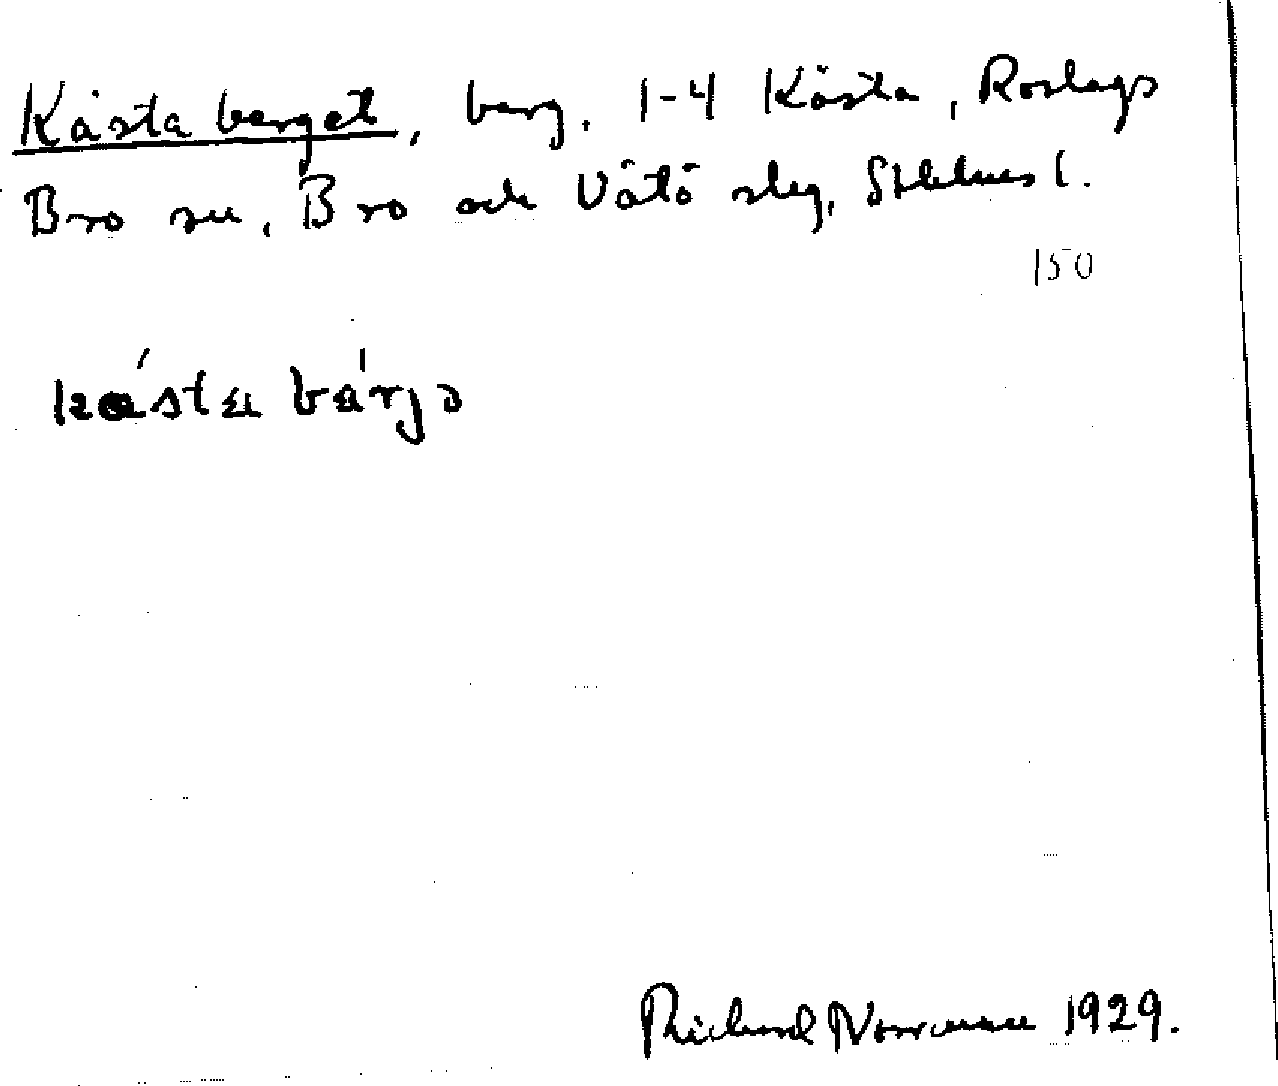 Kåsta berget, berg. 1-4 Kåsta, Roslags
Bro sn, Bro och Vätö slg, Sthlms l.
150
kåsta bärjə
Richard Norrman 1929.